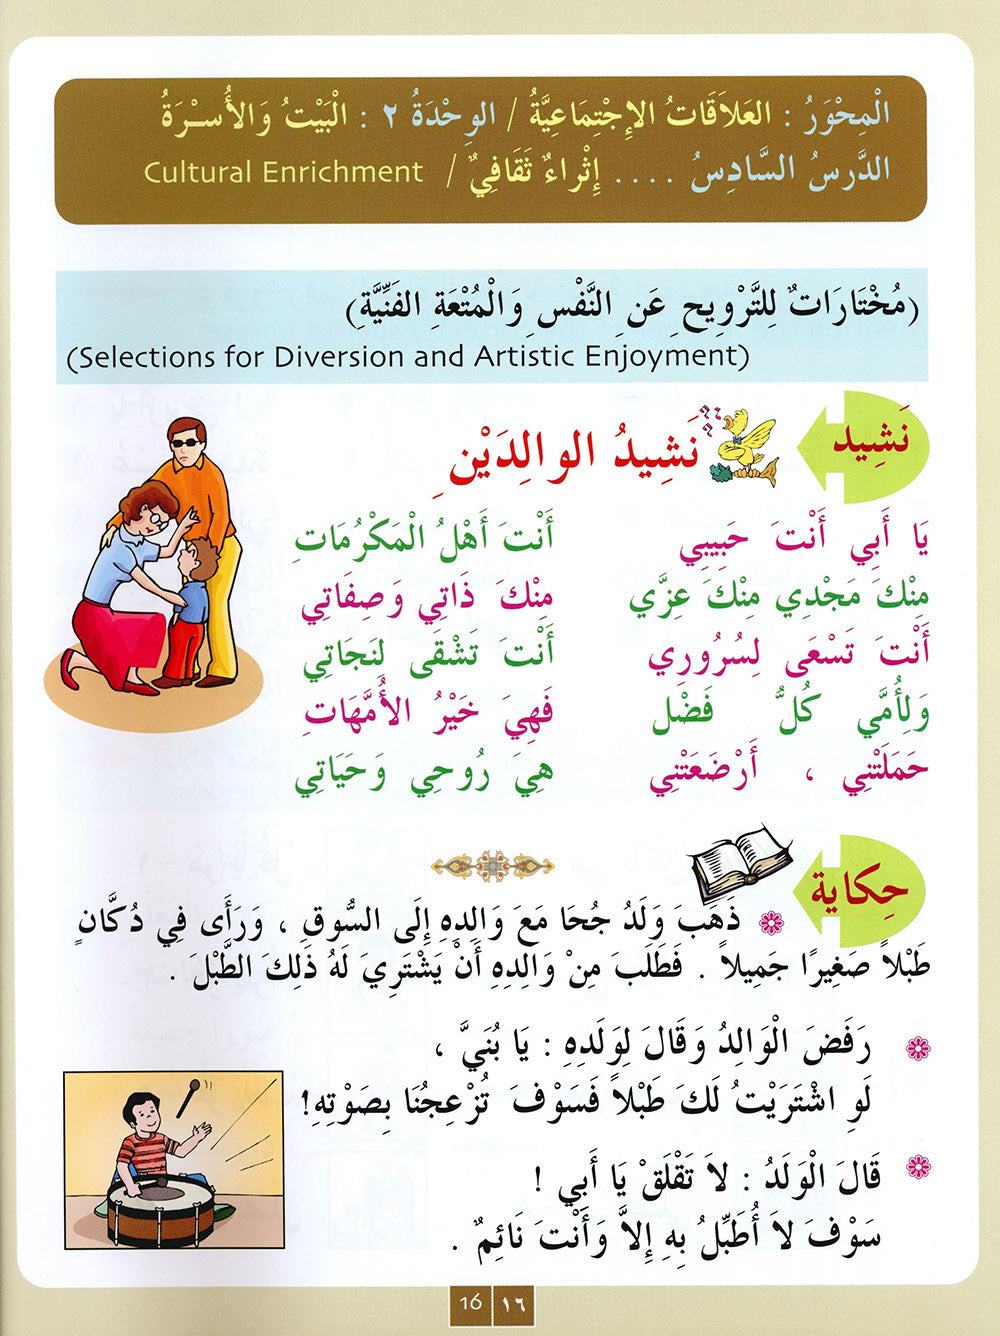 الْمِحْوَرُ : العَلاَقَاتُ الإِجْتِمَاعِيَّةُ / الوِحْدَةُ ٢ : الْبَيْتُ وَالأُسْرَةُ
الدَّرسُ السَّادِسُ .... إِثْراءٌ ثَقَافِيٌ / Cultural Enrichment
(مُخْتَارَاتٌ لِلتَّرْوِيحِ عَنِ النَّفْسِ وَالْمُتْعَةِ الفَنِّيَّةِ)
(Selections for Diversion and Artistic Enjoyment)
نَشِيد
نَشِيدُ الوالِدَيْنِ
يَا أَبِي أَنْتَ حَبِيبِي أَنْتَ أَهْلُ الْمَكْرُمَاتِ
مِنْكَ مَجْدِي مِنْكَ عِزَّي مِنْكَ ذَاتِي وَصِفَاتِي
أَنْتَ تَسْعَى لِسُرُورِي أَنْتَ تَشْقَى لِنَجَاتِي
وَلِأُمَّي كُلُّ فَضْل فَهِيَ خَيْرُ الأُمَّهَاتِ
حَمَلَتْنِي ، أَرْضَعَتْنِي هِيَ رُوحِي وَحَيَاتِي
حِكاية
ذَهَبَ وَلَدُ جُحَا مَعَ وَالِدِهِ إِلَى السُّوقِ ، وَرَأَى فِي دُكَّانٍ
طَبْلاً صَغِيرًا جَمِيلاً . فَطَلَبَ مِنْ وَالِدِهِ أَنْ يَشْتَرِيَ لَهُ ذَلِكَ الطَّبْلَ .
رَفَضَ الْوَالِدُ وَقَالَ لِوَلَدِهِ : يَا بُنَيَّ ،
لَوِ اشْتَرَيْتُ لَكَ طَبْلاً فَسَوْفَ تُزْعِجُنَا بِصَوْتِهِ!
قَالَ الْوَلَدُ : لاَ تَقْلَقْ يَا أَبِي !
سَوْفَ لاَ أُطَبِّلُ بِهِ إِلاَّ وَأَنْتَ نَائِمٌ .
16 ١٦